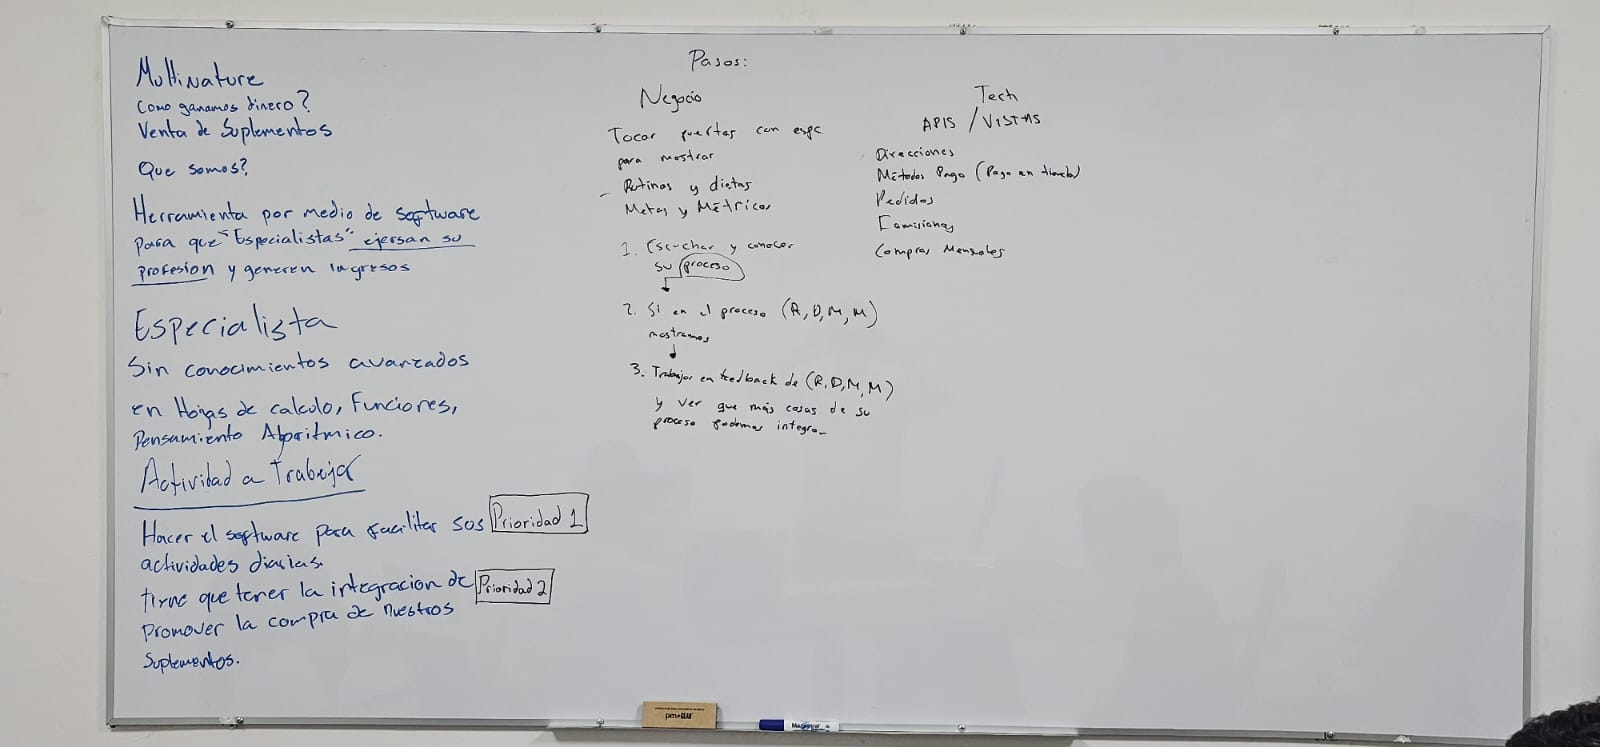 Multinature
Como ganamos dinero?
Venta de Suplementos
Que somos?
Herramienta por medio de software
para que "Especialistas" ejersan su
profesion y generen ingresos
Especialista
Sin conocimientos avanzados
en Hojas de calculo, Funciones,
Pensamiento Algoritmico.
Actividad a Trabajar
Hacer el software para facilitar sus Prioridad 1
actividades diarias.
tiene que tener la integracion de Prioridad 2
promover la compra de nuestros
Suplementos.
Pasos:
Negocio
Tocar puertas con espc.
para mostrar
- Rutinas y dietas
Metas y Métricas
1. Escuchar y conocer
su proceso
2. Si en el proceso (R, D, M, M)
mostramos
3. Trabajar en feedback de (R, D, M, M)
y ver que más cosas de su
proceso podemos integrar
Tech
APIS / VISTAS
Direcciones
Métodos Pago (Pago en tienda)
Pedidos
Comisiones
Compras Mensuales
pen+GEAR
Magistral